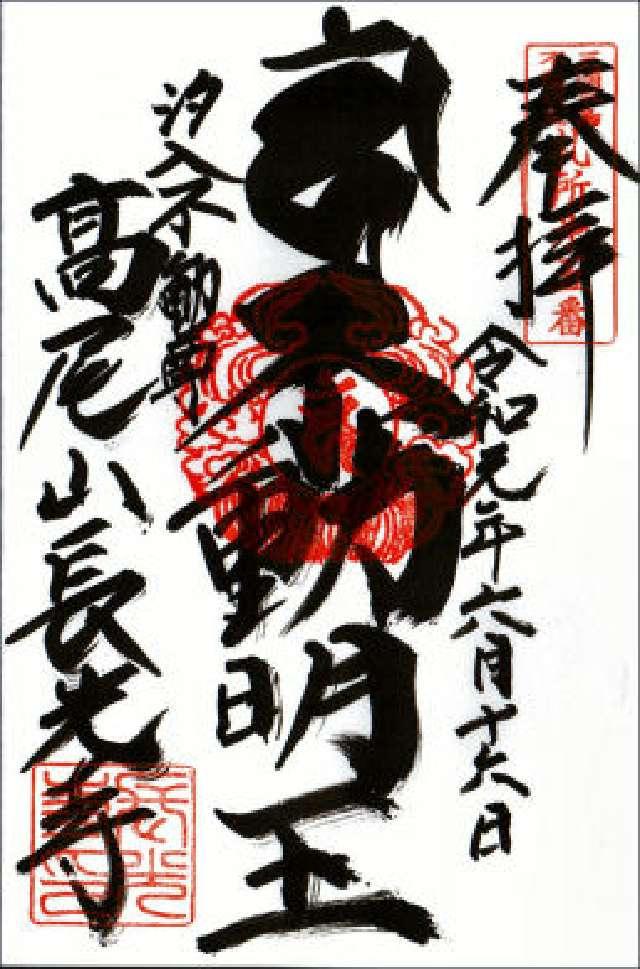 奉拝
札所
番
令和元年六月十六日
不動明王
汐入不動尊
高尾山長光寺